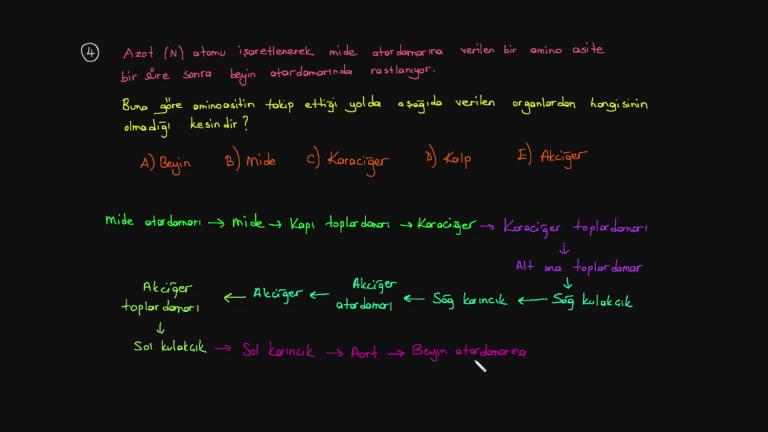 4 Azot (N) atomu işaretlenerek mide atardamarına verilen bir amino asite
bir süre sonra beyin atardamarında rastlanıyor.
Buna göre aminoasitin takip ettiği yolda aşağıda verilen organlardan hangisinin
olmadığı kesindir?
A) Beyin B) Mide C) Karaciğer D) Kalp E) Akciğer
Mide atardamarı → Mide → Kapı toplardamarı → Karaciğer → Karaciğer toplardamarı
↓
Alt ana toplardamar
↓
Akciğer toplardamarı ← Akciğer ← Akciğer atardamarı ← Sağ karıncık ← Sağ kulakçık
↓
Sol kulakçık → Sol karıncık → Aort → Beyin atardamarına